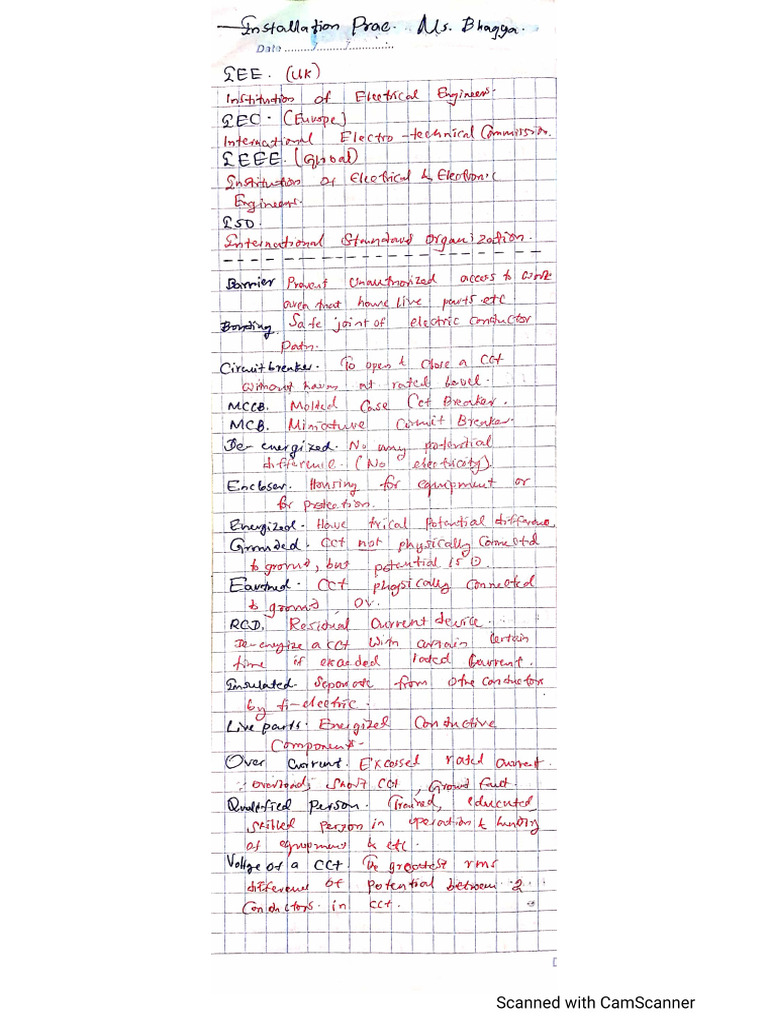 Installation Prac. Ms. Bhagya.
Date ......../......../............
IEE. (UK)
Institution of Electrical Engineers.
IEC. (Europe)
International Electro-technical Commission.
IEEE. (Global)
Institution of Electrical & Electronic
Engineers.
ISO.
International Standard Organization.
Barrier Prevent Unauthorized access to work
area that have live parts etc
Bonding Safe joint of electric conductor
path.
Circuit breaker. To open & close a CCt
without harm at rated level.
MCCB. Molded Case Cct Breaker.
MCB. Miniature Circuit Breaker.
De-energized. No any potential
difference. (No electricity).
Encloser. Housing for equipment or
for protection.
Energized. Have trical Potential difference
Grounded. CCT not physically connected
to ground, but potential is 0.
Earthed. CCT physically connected
to ground, 0V.
RCD. Residual Current device.
De-energize a CCT with certain
time if exceeded rated Current.
Insulated. Seperate from othe conductors
by di-electric.
Live parts. Energized Conductive
Component.
Over Current. Excessed rated current.
∵ overload, short CCT, Ground Fault.
Qualified Person. Trained, educated
skilled person in operation &
of equipment & etc.
Voltage of a CCT. The greatest rms
difference of potential between 2
Conductors in CCT.
Scanned with CamScanner